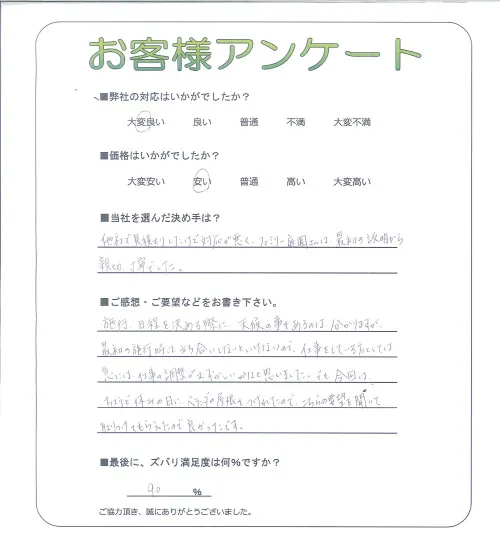 お客様アンケート
■弊社の対応はいかがでしたか？
大変良い 良い 普通 不満 大変不満
■価格はいかがでしたか？
大変安い 安い 普通 高い 大変高い
■当社を選んだ決め手は？
他社で見積もりしたけど対応が悪く、ファミリー庭園さんは、最初の説明から
親切、丁寧でした。
■ご感想・ご要望などをお書き下さい。
施行、日程を決める際に、天候の事もあるのは分かりますが、
最初の施行時は立ち合いしないといけないので、仕事をしている方としては
急には、仕事の調整がむずかしいかなと思いました。でも今回は、
ちょうど休みの日に、の屋根を
ので、こちらの要望を聞いて
もらえたので良かったです。
■最後に、ズバリ満足度は何%ですか？
90 %
ご協力頂き、誠にありがとうございました。